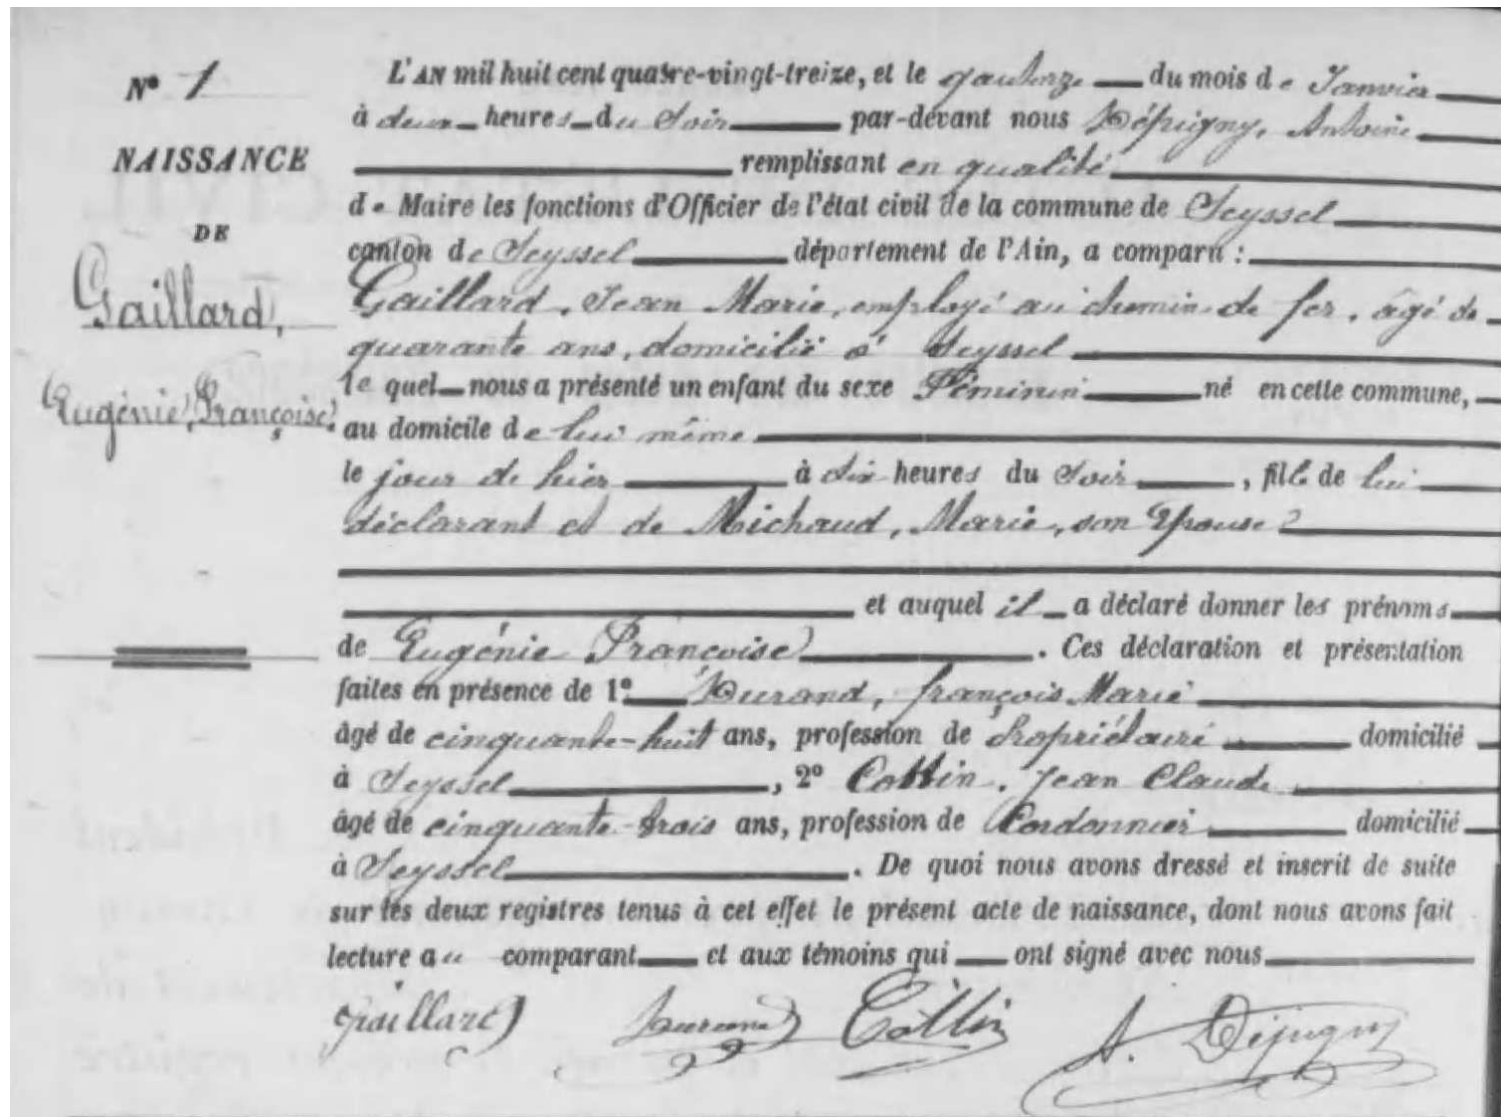 N° 1
NAISSANCE
DE
Gaillard,
Eugénie, Françoise.
L'AN mil huit cent quatre-vingt-treize, et le quatorze du mois de Janvier
à deux heures du Soir par-devant nous Antoine
remplissant en qualité
de Maire les fonctions d'Officier de l'état civil de la commune de Seyssel
canton de Seyssel département de l'Ain, a comparu :
Gaillard, Jean Marie, employé au chemin de fer, âgé de
quarante ans, domicilié à Seyssel
le quel nous a présenté un enfant du sexe Féminin né en cette commune,
au domicile de lui même
le jour de hier à dix heures du Soir, fille de lui
déclarant et de Michaud, Marie, son Epouse
et auquel il a déclaré donner les prénoms
de Eugénie Françoise. Ces déclaration et présentation
faites en présence de 1° Durand, françois Marie
âgé de cinquante-huit ans, profession de Propriétaire domicilié
à Seyssel, 2° Cottin, Jean Claude
âgé de cinquante-trois ans, profession de Cordonnier domicilié
à Seyssel. De quoi nous avons dressé et inscrit de suite
sur les deux registres tenus à cet effet le présent acte de naissance, dont nous avons fait
lecture au comparant et aux témoins qui ont signé avec nous
Gaillard Durand Cottin A.